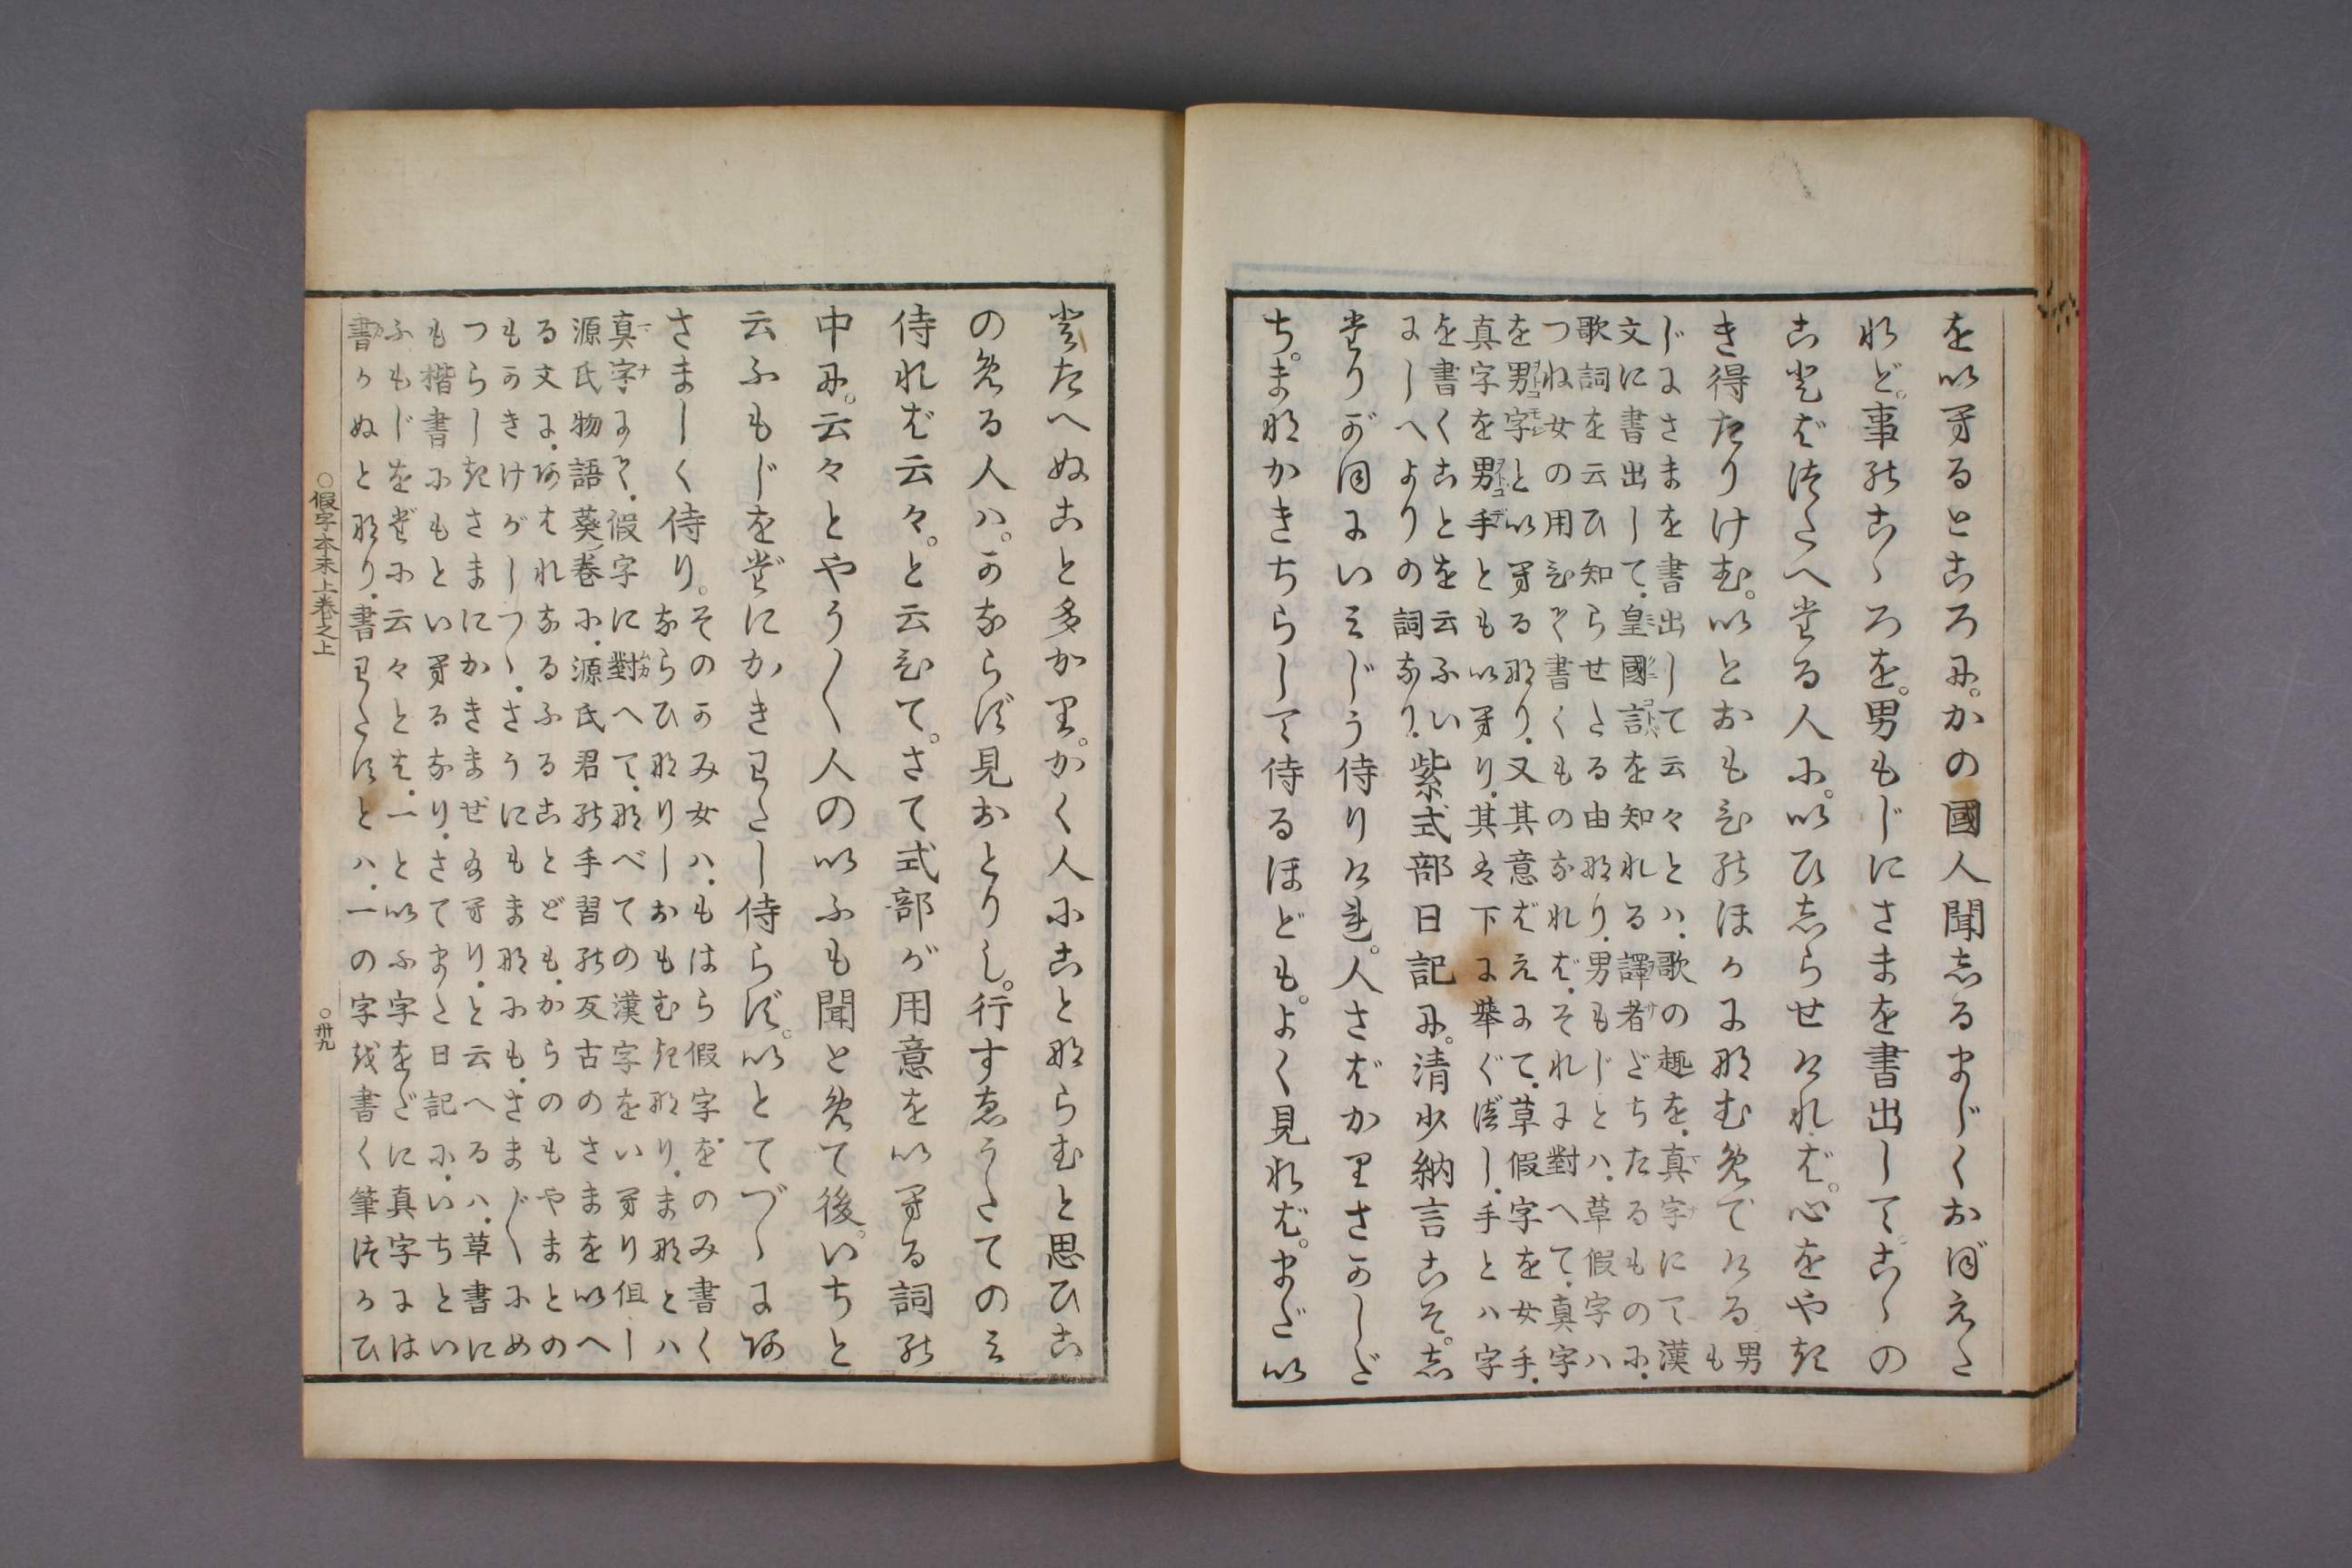 をいへるところに。かの國人聞しるまじくおぼえた
れど。事のこゝろを。男もじにさまを書出して。こゝの
ことばつたへたる人に。いひしらせければ。心をやき
き得たりけむ。いとおもひのほかになむめでける 男も
じにさまを書出して云々とハ、歌の趣を、真字にて漢
文に書出して、皇國言を知れる譯者だちたるものに、
歌詞を云ひ知らせたる由なり、男もじとハ、草假字ハ
つね女の用ひて書くものなれば、それに對へて、真字
を男字といへるなり、又其意ばえにて、草假字を女手、
真字を男手ともいへり、其は下に舉ぐべし、手とハ字
を書くことを云ふいにしへよりの詞なり、
紫式部日記に。清少納言こそ。し
たりがほにいみじう侍りける。人さばかりさかしだ
ち。まなかきちらして侍るほども。よく見れば。まだい
とたへぬこと多かり。かく人にことならむと思ひこ
のめる人ハ。かならず見おとりし。行すゑうたてのみ
侍れば云々。と云ひて。さて式部が用意をいへる詞の
中に。云々とやう〳〵人のいふも聞とめて後。いちと
云ふもじをだにかきわたし侍らず。いとてづゝにあ
さましく侍り。 そのかみ女ハ、もはら假字をのみ書く
ならひなりしおもむきなり、まなとハ
真字にて、假字に對へて、なべての漢字をいへり但し
源氏物語葵ノ巻に、源氏君の手習の反古のさまをいへ
る文に、あはれなるふることども、からのもやまとの
もかきけがしつゝ、さうにもまなにも、さまざまにめ
つらしきさまにかきまぜ給へり、と云へるハ、草書に
も楷書にもといへるなり、さてまた日記に、いちとい
ふもじをだに云々とは、一といふ字をだに真字には
書かぬとなり、書わたすとハ、一の字を書く筆つかひ
○假字本末上巻之上
○卅九